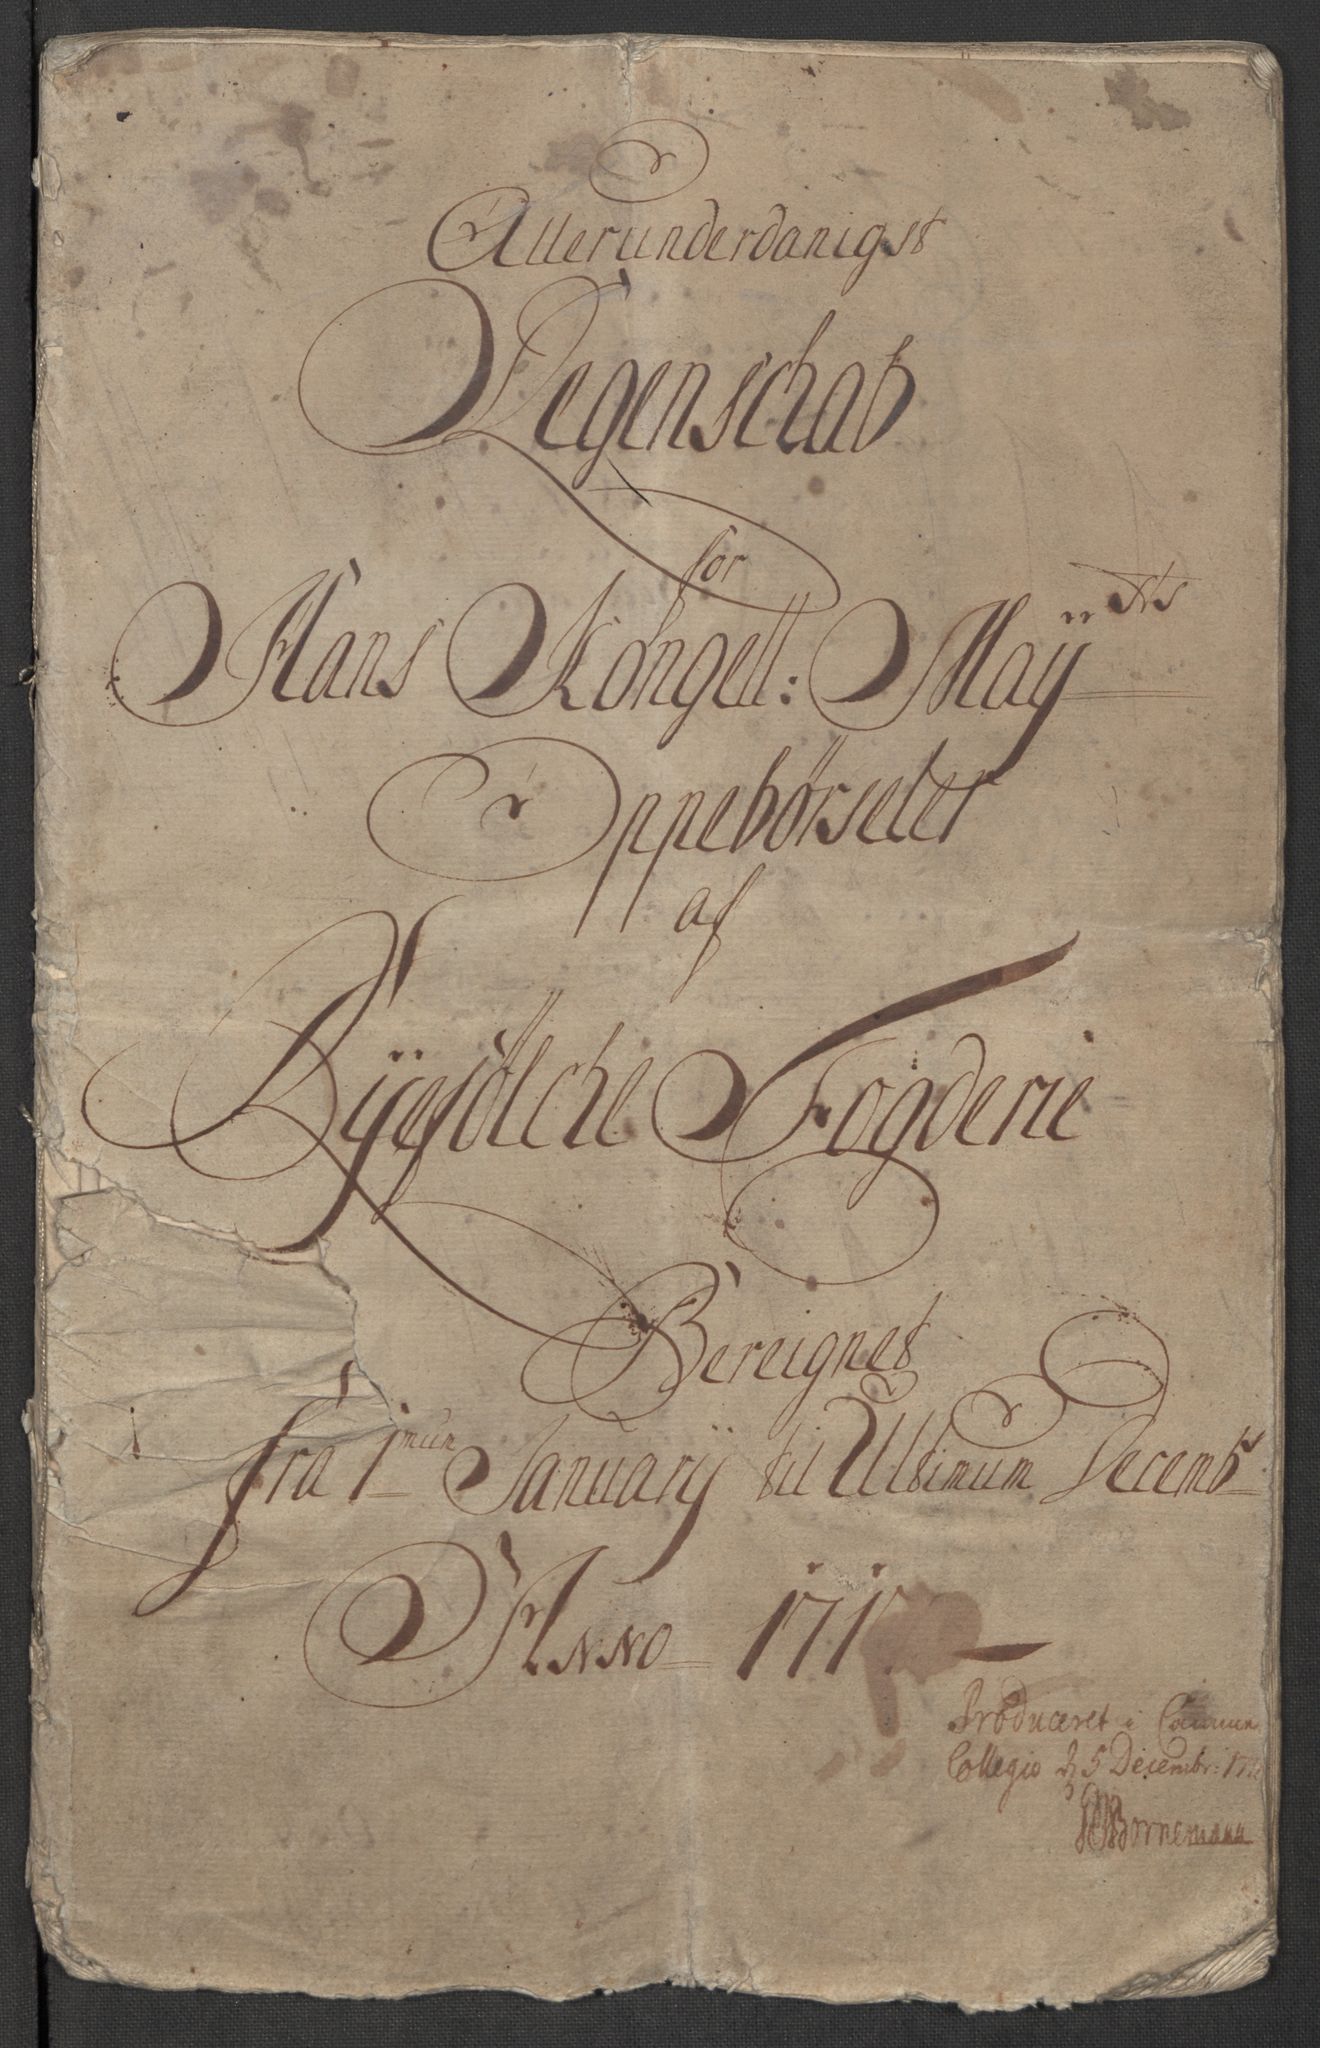 Allerunderdanigst
Regenschab
for
Hans Kongell: Maÿts
Oppebörseler
af
Rÿefölche Fogderie
Bereignet
fra 1mum Januarÿ til Ultimum Decembs
Anno 171
Produceret i Cammer
Collegio d 5 Decembr: 
Bornemann